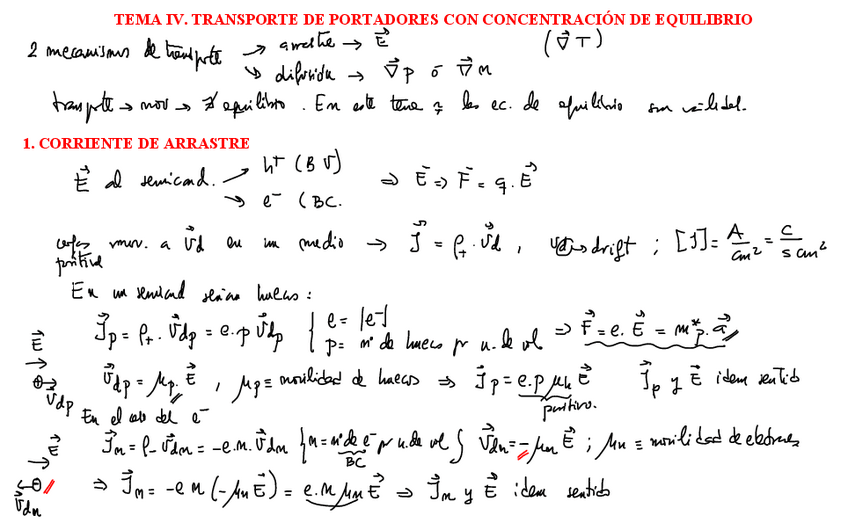 TEMA IV. TRANSPORTE DE PORTADORES CON CONCENTRACIÓN DE EQUILIBRIO
2 mecanismos de transporte → arrastre → E⃗ (∇⃗T)
↳ difusión → ∇⃗p ó ∇⃗n
transporte → mov → ∄ equilibrio. En este tema las ec. de equilibrio son
1. CORRIENTE DE ARRASTRE
E⃗ al semicond. → h⁺ (BV) ⇒ E⃗ ⇒ F⃗ = q.E⃗
→ e⁻ (BC.
cargas mov. a v⃗d en un medio → J⃗ = ρ₊.v⃗d, vd → drift ; [J] = A/cm² = C/s cm²
positiva
En un semicond serían huecos:
J⃗p = ρ₊.v⃗dp = e.p v⃗dp { e = |e⁻| p = nº de huecos por u. de vol ⇒ F⃗ = e.E⃗ = m*p.a⃗
E⃗ → ⊕→ v⃗dp
v⃗dp = μp.E⃗, μp ≡ movilidad de huecos ⇒ J⃗p = e.p μn E⃗ J⃗p y E⃗ idem sentido
positivo.
En el caso del e⁻
E⃗ → ←⊖ v⃗dn
J⃗n = ρ₋ v⃗dn = -e.n.v⃗dn { n = nº de e⁻ por u. de vol } v⃗dn = -μn E⃗ ; μn ≡ movilidad de electrones
BC
⇒ J⃗n = -e n (-μn E⃗) = e.n μn E⃗ ⇒ J⃗n y E⃗ idem sentido